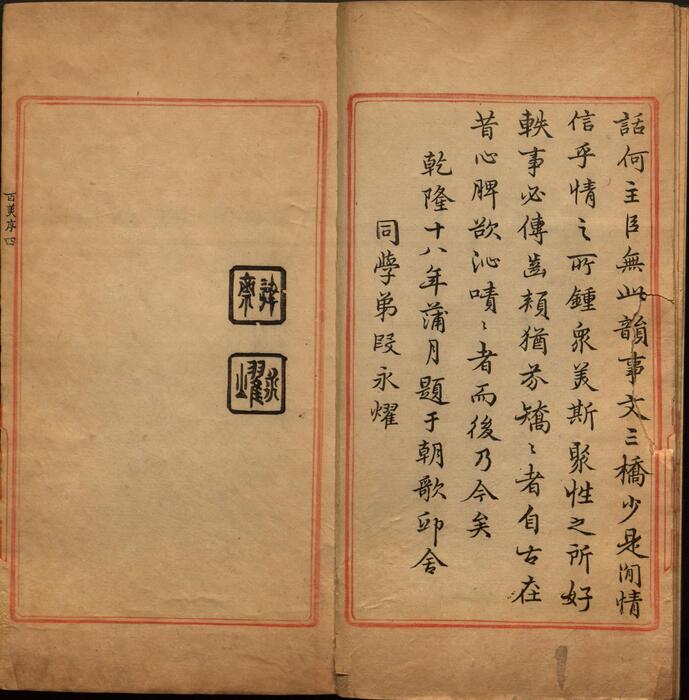 話何主臣無此韻事文三橋少是閒情
信乎情之所鍾眾美斯聚性之所好
軼事必傳齒頰猶芬矯〻者自古在
昔心脾欲沁嘖〻者而後乃今矣
乾隆十八年蒲月題于朝歌邸舍
同學弟段永燿
齋
永燿
百美序 四